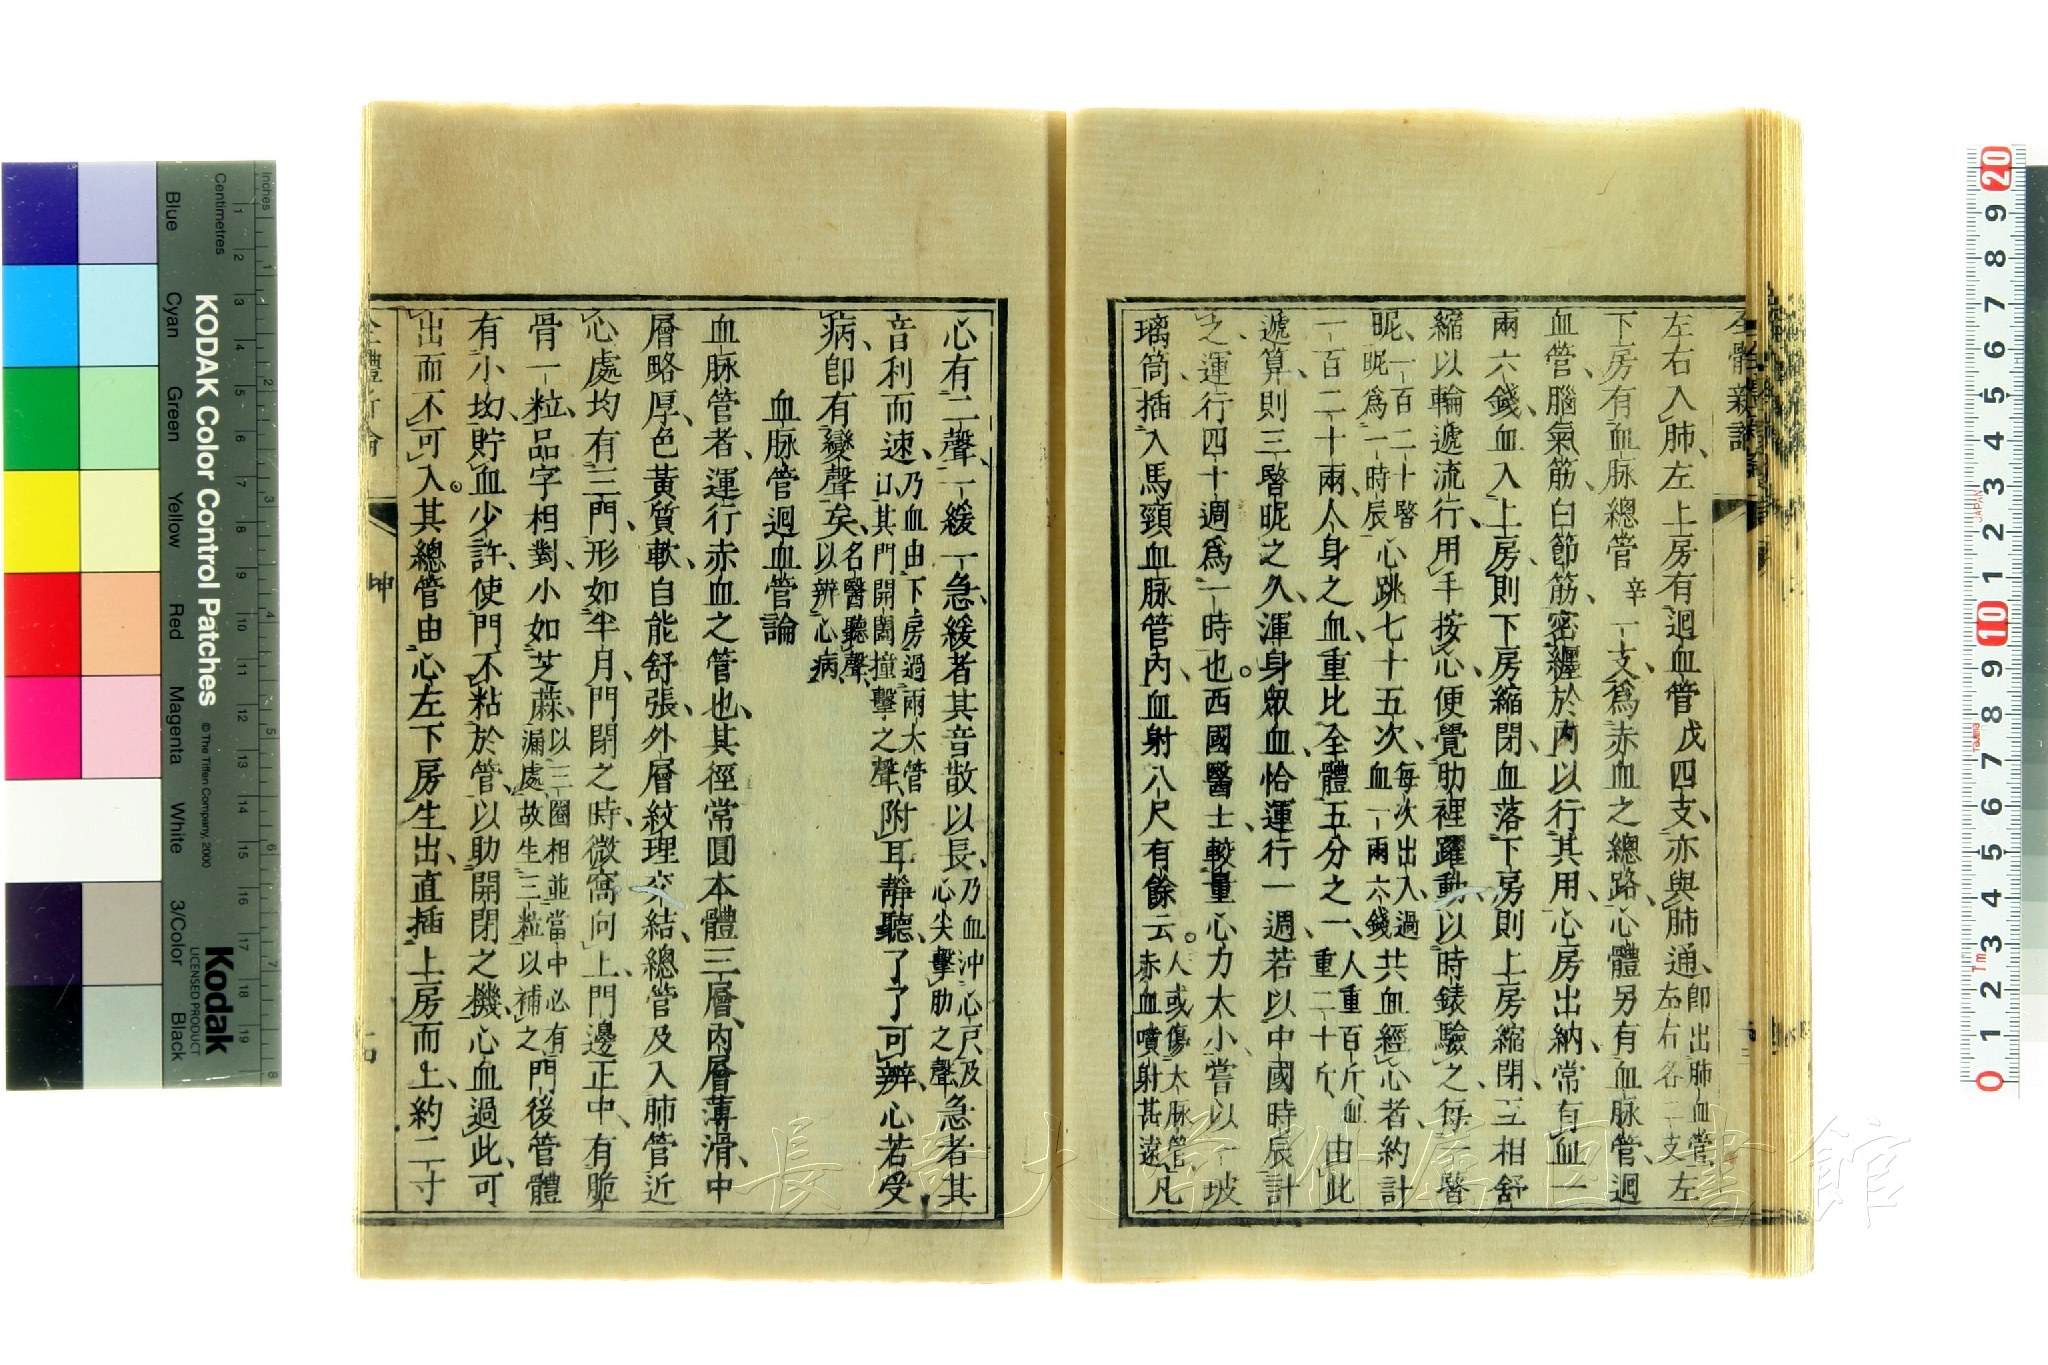 全體新論
左右入肺、左上房有迴血管戊四支、亦與肺通、卽出肺血管、左右各二支左
下房有血脉總管辛一支、爲赤血之總路、心體另有血脉管、迴
血管、腦氣筋、白節筋、密纏於內以行其用、心房出納、常有血一
兩六錢、血入上房、則下房縮閉、血落下房、則上房縮閉、互相舒
縮以輪遞流行、用手按心、便覺肋裡躍動、以時錶驗之、每瞖
眤、一百二十瞖眤爲一時辰心跳七十五次、每次出入、過血一兩六錢共血經心者、約計
一百二十兩、人身之血、重比全體五分之一、人重百斤、血重二十斤、由此
遞算、則三瞖眤之久、渾身衆血、恰運行一週、若以中國時辰計
之、運行四十週爲一時也。西國醫士、較量心力大小、嘗以玻
璃筒、插入馬頸血脉管內、血射八尺有餘云。人或傷大脉管、赤血噴射甚遠凡
心有二聲、一緩一急、緩者其音散以長、乃血冲心戶、及心尖擊肋之聲急者其
音利而速、乃血由下房過兩大管、以其門開闔撞擊之聲、附耳靜聽、了了可辨、心若受
病、卽有變聲矣、名醫聽聲、以辨心病、
血脉管迴血管論
血脉管者、運行赤血之管也、其徑常圓、本體三層、內層薄滑、中
層略厚、色黃質軟、自能舒張、外層紋理交結、總管及入肺管近
心處、均有三門、形如半月、門閉之時、微窩向上、門邊正中、有脆
骨一粒、品字相對、小如芝蔴、以三圈相並當中必有漏處、故生三粒以補之門後管體
有小坳、貯血少許、使門不粘於管、以助開閉之機、心血過此、可
出而不可入。其總管由心左下房生出、直插上房而上、約二寸
全體新論
坤